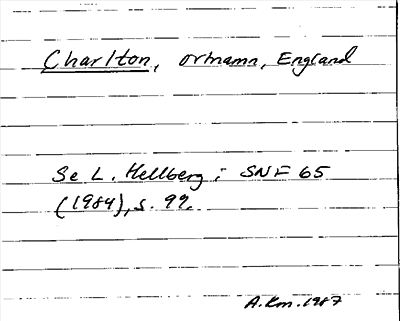 Charlton, ortnamn, England
Se L. Hellberg i SNF 65
(1984), s. 99.
A.Km. 1987